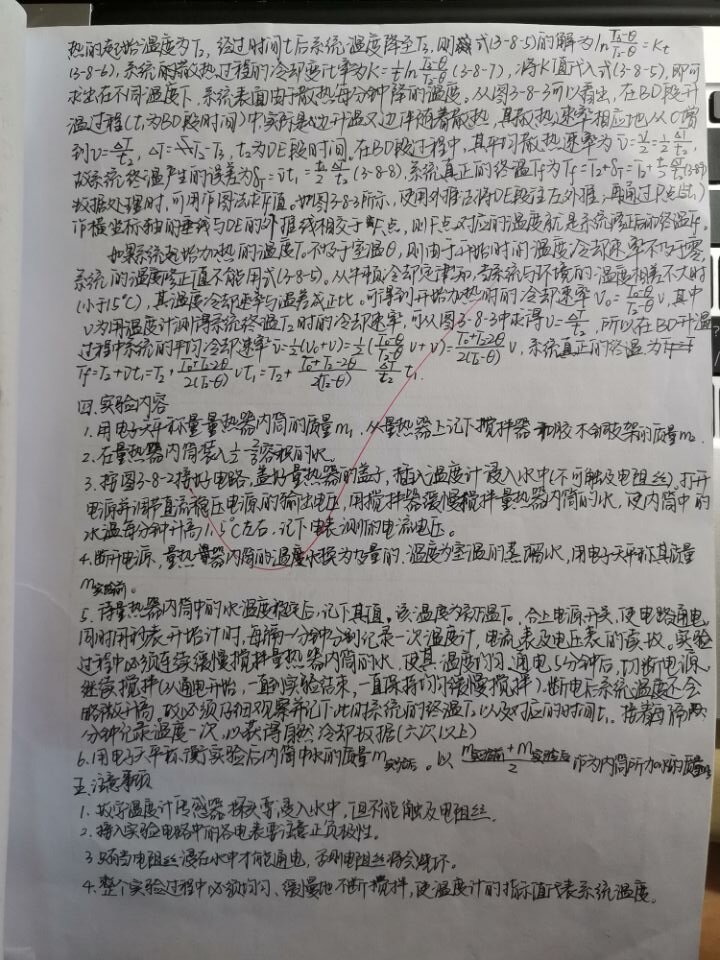 热的起始温度为T₂, 经过时间t后系统温度降至T₃, 则式(3-8-5)的解为ln (T₂-θ)/(T₃-θ) = Kt
(3-8-6), 系统的散热过程的冷却度比率为K=1/t ln (T₂-θ)/(T₃-θ) (3-8-7), 将K值代入式(3-8-5), 即可
求出在不同温度下, 系统表面由于散热每分钟降的温度。从图3-8-3可以看出, 在BD段升
温过程(t₁为BD段时间)中, 实际是边升温又边伴随着散热, 其散热速率相应地从0增
到υ=ΔT/t₂, ΔT=T₂-T₃, t₂为DE段时间, 在BD段过程中, 其平均散热速率为ῡ=υ/2=1/2 ΔT/t₂,
故系统终温产生的误差为δT=ῡt₁=t₁/2 ΔT/t₂ (3-8-8), 系统真正的终温Tf为Tf=T₂+δT=T₂+t₁/2 ΔT/t₂ (3-8-9)
数据处理时, 可用作图法求值。如图3-8-3所示, 使用外推法将DE段往左外推, 再通过D点(t₁)
作横坐标轴的垂线与DE的外推线相交于F点, 则F点对应的温度就是系统修正后的终温Tf。
如果系统起始加热的温度T₀不等于室温θ, 则由于开始时间温度冷却速率不等于零,
系统的温度修正值不能用式(3-8-5)。从牛顿冷却定律知, 当系统与环境的温度相差不大时
(小于15℃), 其温度冷却速率与温差成正比。可得到开始加热时的冷却速率υ₀=(T₀-θ)/(T₂-θ) υ, 其中
υ为用温度计测得系统终温T₂时的冷却速率, 可从图3-8-3中求得υ=ΔT/t₂, 所以在BD升温
过程中系统的平均冷却速率ῡ=1/2(υ₀+υ)=1/2((T₀-θ)/(T₂-θ) υ+υ)=(T₀+T₂-2θ)/2(T₂-θ) υ, 系统真正的终温为
Tf=T₂+ῡt₁=T₂+(T₀+T₂-2θ)/2(T₂-θ) υt₁=T₂+(T₀+T₂-2θ)/2(T₂-θ) ΔT/t₂ t₁.
四. 实验内容
1. 用电子天平称量量热器内筒的质量m₁, 从量热器上记下搅拌器和胶木铜支架的质量m₂
2. 在量热器内筒装入容积的水。
3. 按图3-8-2接好电路, 盖好量热器的盖子, 插入温度计浸入水中(不可触及电阻丝), 打开
电源并调节直流稳压电源的输出电压, 用搅拌器缓慢搅拌量热器内筒的水, 使内筒中的
水温每分钟升高1.5℃左右, 记下电表测的电流电压。
4. 断开电源, 量热器内筒的温度水换为好量的、温度为室温的蒸馏水, 用电子天平称其质量
m实验前。
5. 待量热器内筒中的水温度稳定后, 记下其值。该温度为初温T₀. 合上电源开关, 使电路通电,
同时用秒表开始计时, 每隔一分钟分别记录一次温度计, 电流表及电压表的读数。实验
过程中必须连续缓慢搅拌量热器内筒的水, 使其温度均匀. 通电5分钟后, 切断电源,
继续搅拌(从通电开始, 一直到实验结束, 一直保持均匀缓慢搅拌). 断电后系统温度还会
略微升高, 故必须仔细观察并记下此时系统的终温T₂以及对应的时间t₁. 接着每隔两
分钟记录温度一次, 以获得自然冷却数据(六次以上)
6. 用电子天平称衡实验后内筒中水的质量m实验后。以 (m实验前+m实验后)/2 作为内筒所加水的质量
五. 注意事项
1. 数字温度计传感器探头要浸入水中, 但不能触及电阻丝.
2. 接入实验电路中的各电表要注意正负极性。
3. 只有当电阻丝浸在水中才能通电, 否则电阻丝将会烧坏。
4. 整个实验过程中必须均匀、缓慢地不断搅拌, 使温度计的指示值代表系统温度。